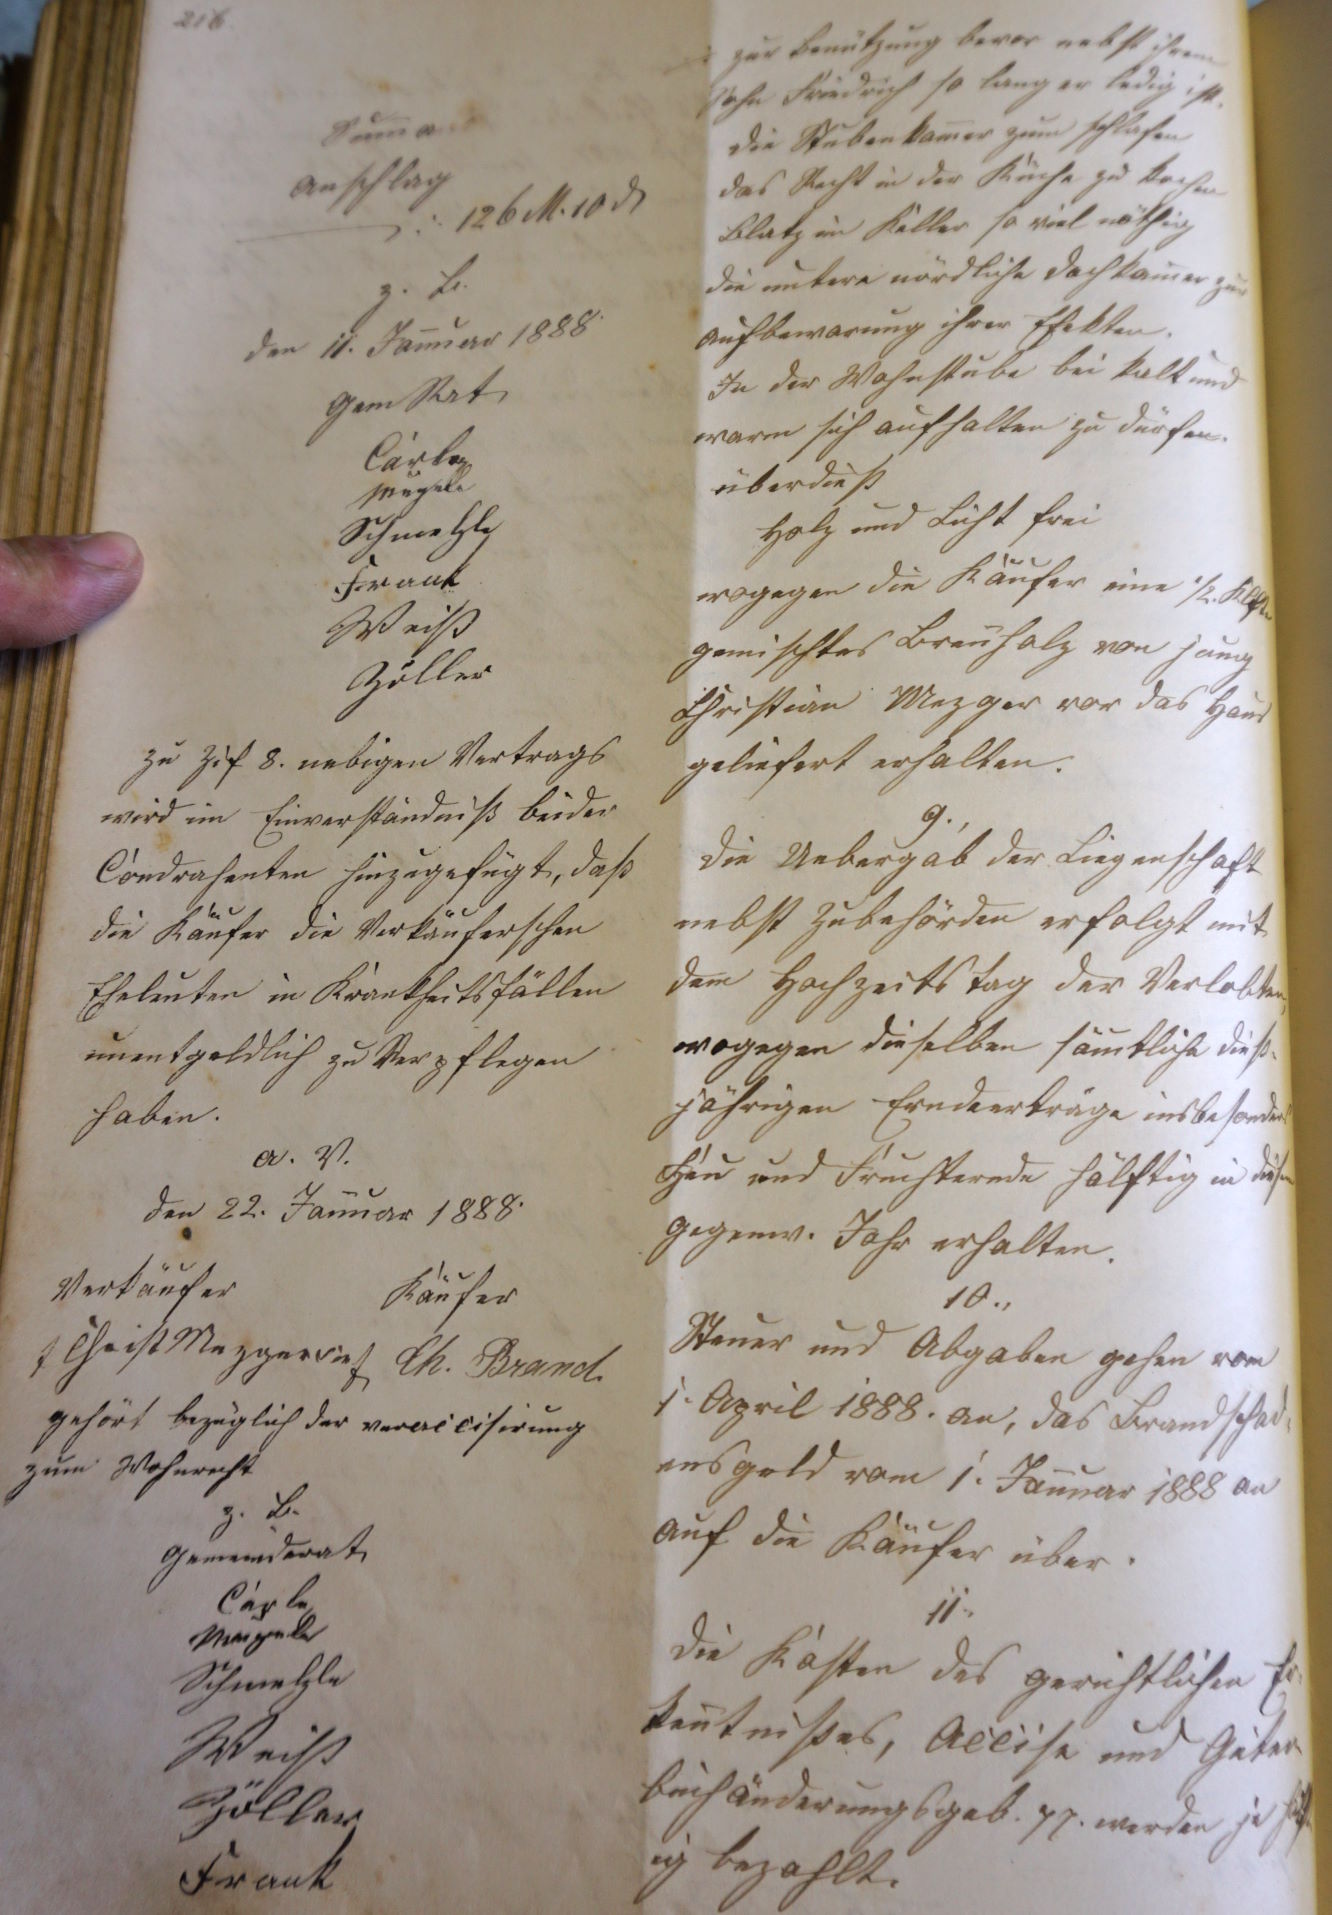 216.
Summa
Anschlag
126 M. 10 d
z. B.
den 11. Januar 1888.
Gem Rat
Carle
Mugele
Schmelzle
Frank
Weiß
Zöller
Zu Zif 8. nebigen Vertrags
wird im Einverständniß beider
Condrahenten hinzugefügt, daß
die Käufer die Verkäuferschen
Eheleuten in Krankheitsfällen
unentgeldlich zu Verpflegen
haben.
a. V.
den 22. Januar 1888.
Verkäufer Käufer
Christ Mezger Ch. Brand.
gehört bezüglich der veraccisirung
zum Wohnrecht
z. B.
Gemeinderat
Carle
Mugele
Schmelzle
Weiß
Zöller
Frank
zur Benützung bevor nebst ihrem
Sohn Friedrich so lang er ledig ist.
die Stubenkamer zum schlafen
das Recht in der Küche zu kochen
Blatz im Keller so viel nöthig
die untere nördliche Dachkamer zur
Aufbewarung ihrer Efekten.
In der Wohnstube bei kalt und
warm sich aufhalten zu dürfen.
überdieß
Holz und Licht frei
wogegen die Käufer eine 1/2. Klftr
gemischtes Brenholz von jung
Christian Mezger vor das Haus
geliefert erhalten.
9.,
Die Uebergab der Liegenschaft
nebst Zubehörden erfolgt mit
dem Hochzeitstag der Verlobten,
wogegen dieselben sämtliche dieß-
jährigen Erndeerträge insbesonders
Heu und Fruchternde hälftig in diesem
gegenw. Jahr erhalten.
10.,
Steuer und Abgaben gehen vom
1. April 1888. an, das Brandschad-
ensgeld vom 1. Januar 1888 an
auf die Käufer über.
11.,
Die Kosten des gerichtlichen Er-
kentnißes, Accise und Güter-
buchänderungsgeb. pp. werden je hälft-
ig bezahlt.